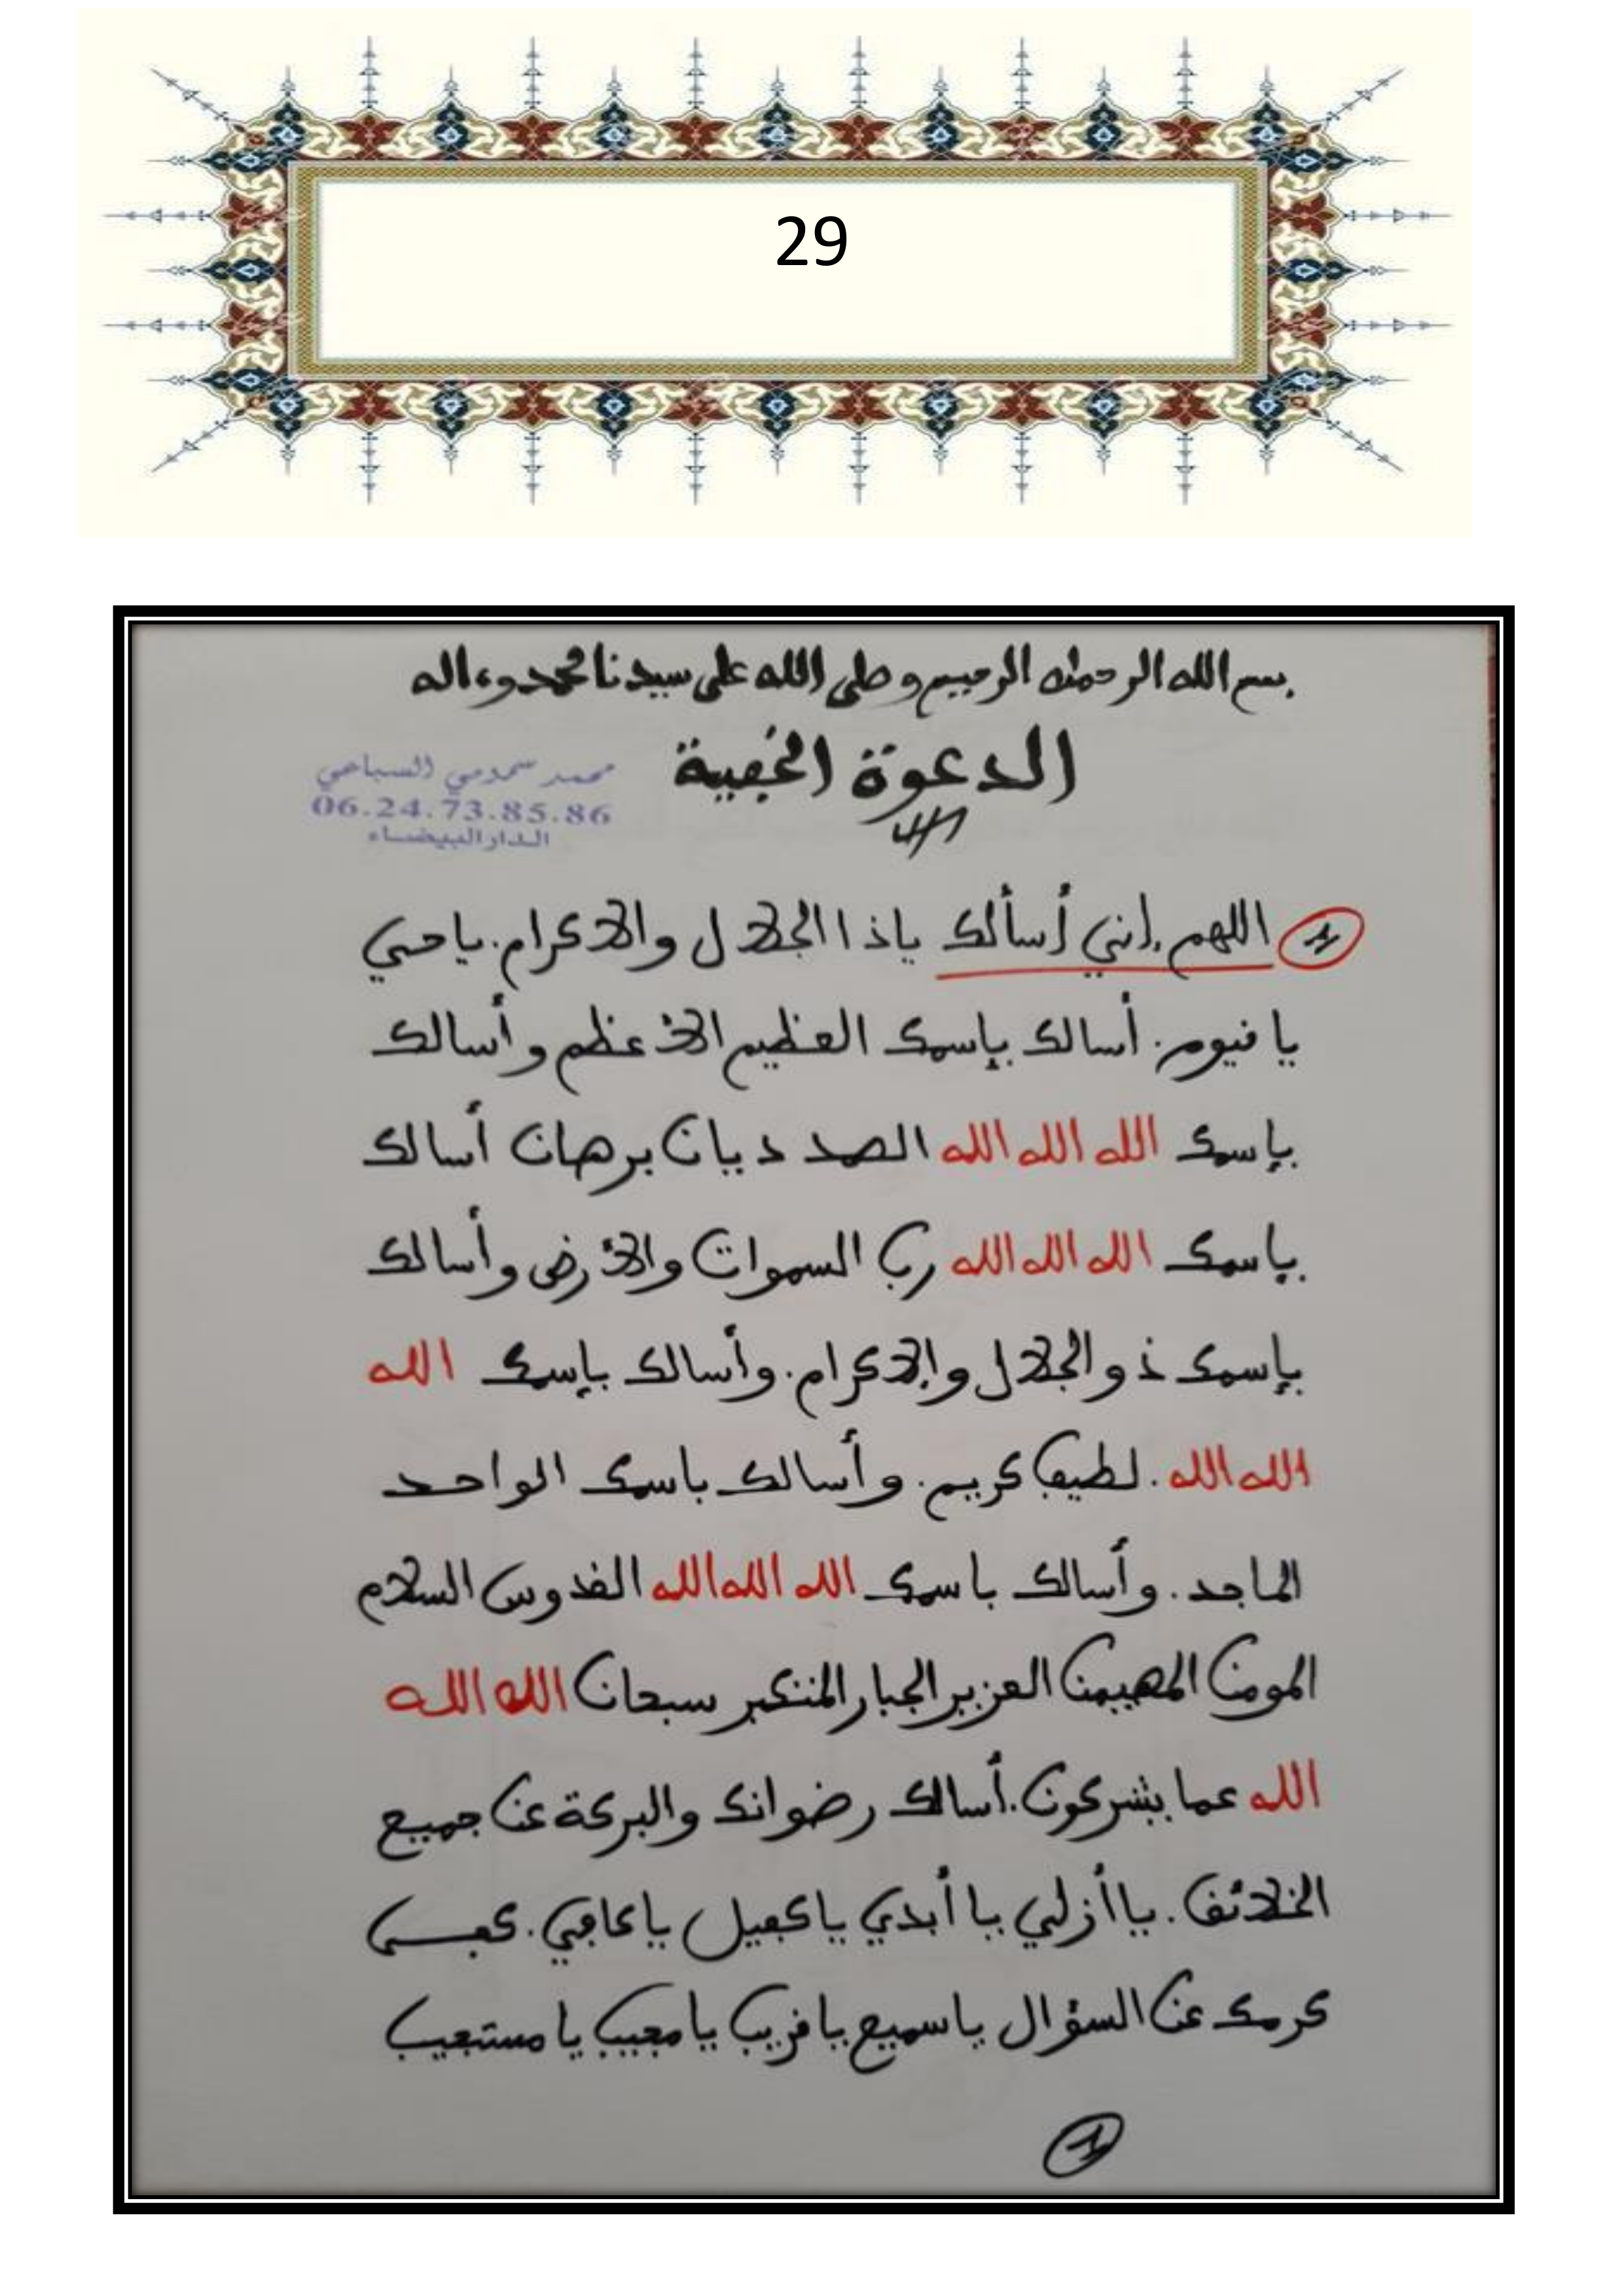 29
بسم الله الرحمن الرحيم وصلى الله على سيدنا محمد وءاله
الدعوة الخفية
محمد السباعي
06.24.73.85.86
الدار البيضاء
1 اللهم إني أسألك ياذا الجلال والاكرام. ياحي
يا قيوم. أسالك بإسمك العظيم الأعظم وأسالك
بإسمك الله الله الله الصمد ديان برهان أسالك
بإسمك الله الله الله رب السموات والأرض وأسالك
بإسمك ذو الجلال والإكرام. وأسالك بإسمك الله
الله الله. لطيف كريم. وأسالك باسمك الواحد
الماجد. وأسالك باسمك الله الله الله القدوس السلام
المومن المهيمن العزيز الجبار المتكبر سبحان الله الله
الله عما يشركون. أسالك رضوانك والبركة عن جميع
الخلائق. ياأزلي ياأبدي ياكفيل ياكافي. كفى
كرمك عن السؤال ياسميع ياقريب يامجيب يا مستجيب
1